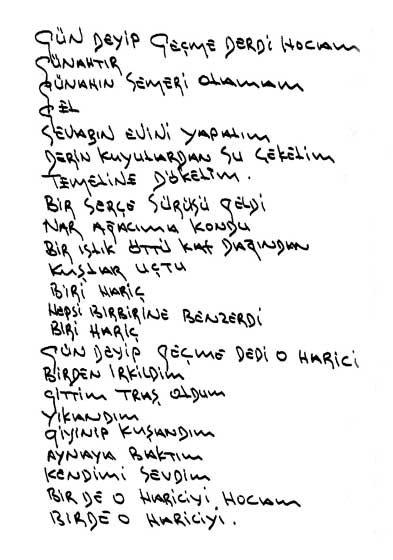 GÜN DEYİP GEÇME DERDİ HOCAM
GÜNAHTIR
GÜNAHIN SEMERİ OLAMAM
GEL
SEVABIN EVİNİ YAPALIM
DERİN KUYULARDAN SU ÇEKELİM
TEMELİNE DÖKELİM.
BİR SERÇE SÜRÜSÜ GELDİ
NAR AĞACIMA KONDU
BİR ISLIK ÖTTÜ KAF DAĞINDAN
KUŞLAR UÇTU
BİRİ HARİÇ
HEPSİ BİRBİRİNE BENZERDİ
BİRİ HARİÇ
GÜN DEYİP GEÇME DEDİ O HARİCİ
BİRDEN İRKİLDİM
GİTTİM TRAŞ OLDUM
YIKANDIM
GİYİNİP KUŞANDIM
AYNAYA BAKTIM
KENDİMİ SEVDİM
BİR DE O HARİCİYİ HOCAM
BİRDE O HARİCİYİ.